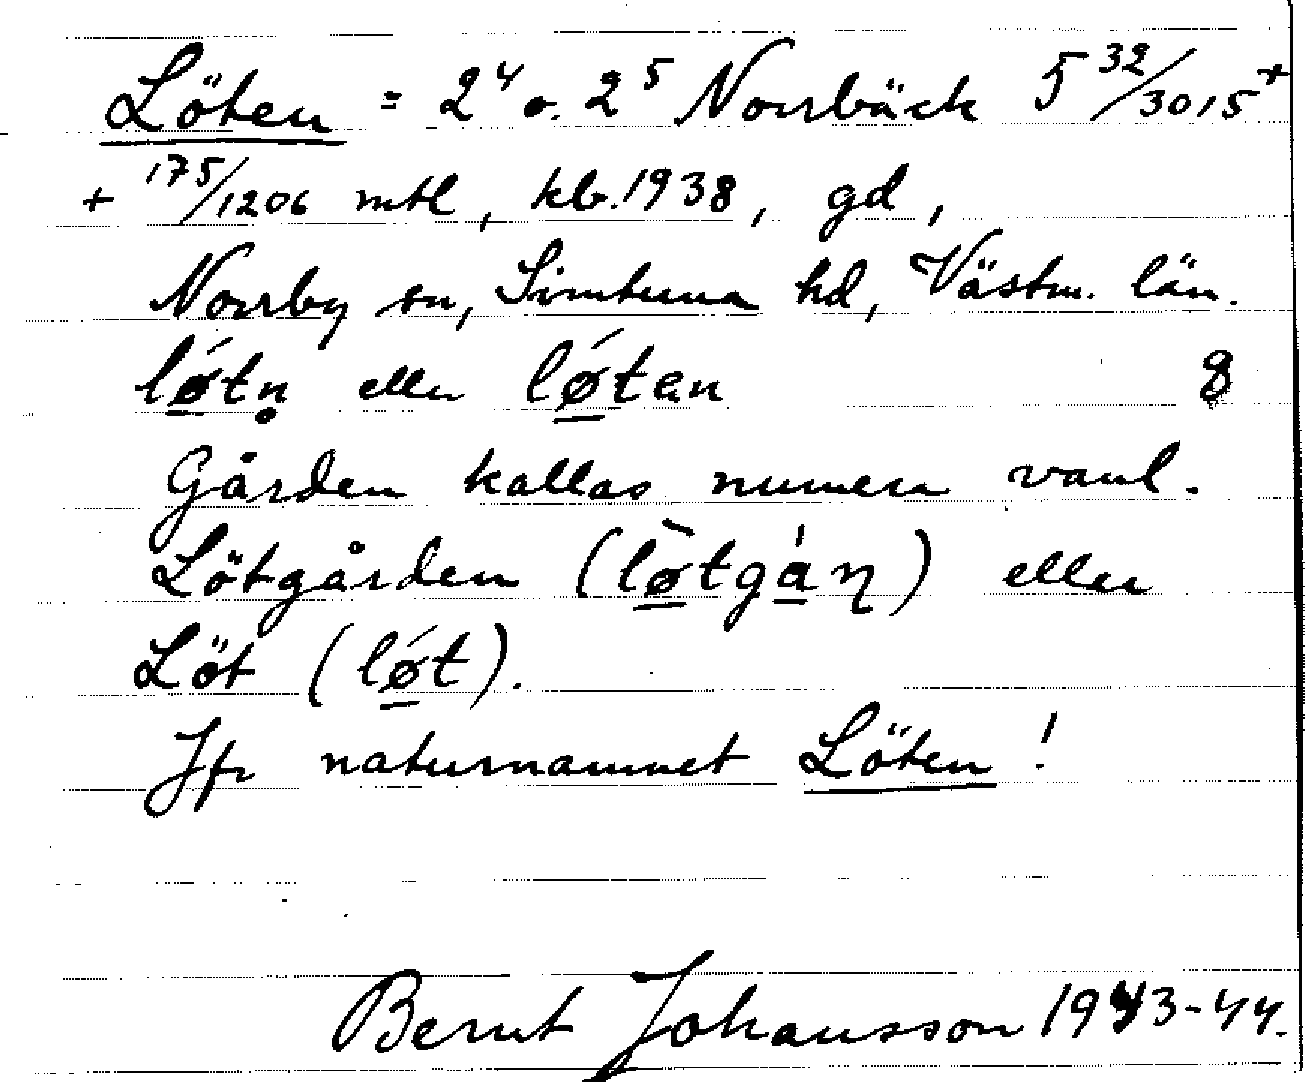 Löten = 2⁴ o. 2⁵ Norrbäck 5 32/3015 +
+ 175/1206 mtl, kb. 1938, gd,
Norrby sn, Simtuna hd, Västm. län.
lǿ̱tn̥ eller lǿ̱tən 8
Gården kallas numera vanl.
Lötgården (lø̱̀tgá̱ɳ) eller
Löt (lǿ̱t).
Jfr naturnamnet Löten!
Bernt Johansson 1943-44.